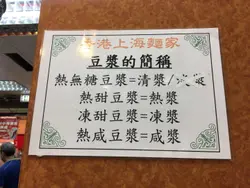 香港上海麵家
豆漿的簡稱
熱無糖豆漿=清漿/漿
熱甜豆漿=熱漿
凍甜豆漿=凍漿
熱咸豆漿=咸漿